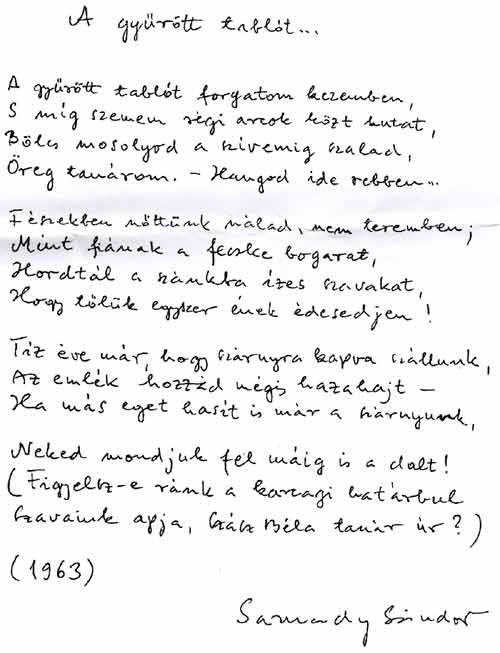 A gyűrött tablót...
A gyűrött tablót forgatom kezemben,
S míg szemem régi arcok közt kutat,
Bölcs mosolyod a szívemig szalad,
Öreg tanárom. – Hangod ide rebben...
Fészekben nőttünk nálad, nem teremben;
Mint fiának a fecske bogarat,
Hordtál a szánkba ízes szavakat,
Hogy tőlük egyszer ének édesedjen!
Tíz éve már, hogy szárnyra kapva szállunk,
Az emlék hozzád mégis hazahajt –
Ha más eget hasít is már a szárnyunk,
Neked mondjuk fel máig is a dalt!
(Figyelsz-e ránk a karcagi határbul
Szavaink apja, Szász Béla tanár úr?)
(1963)
Sándor